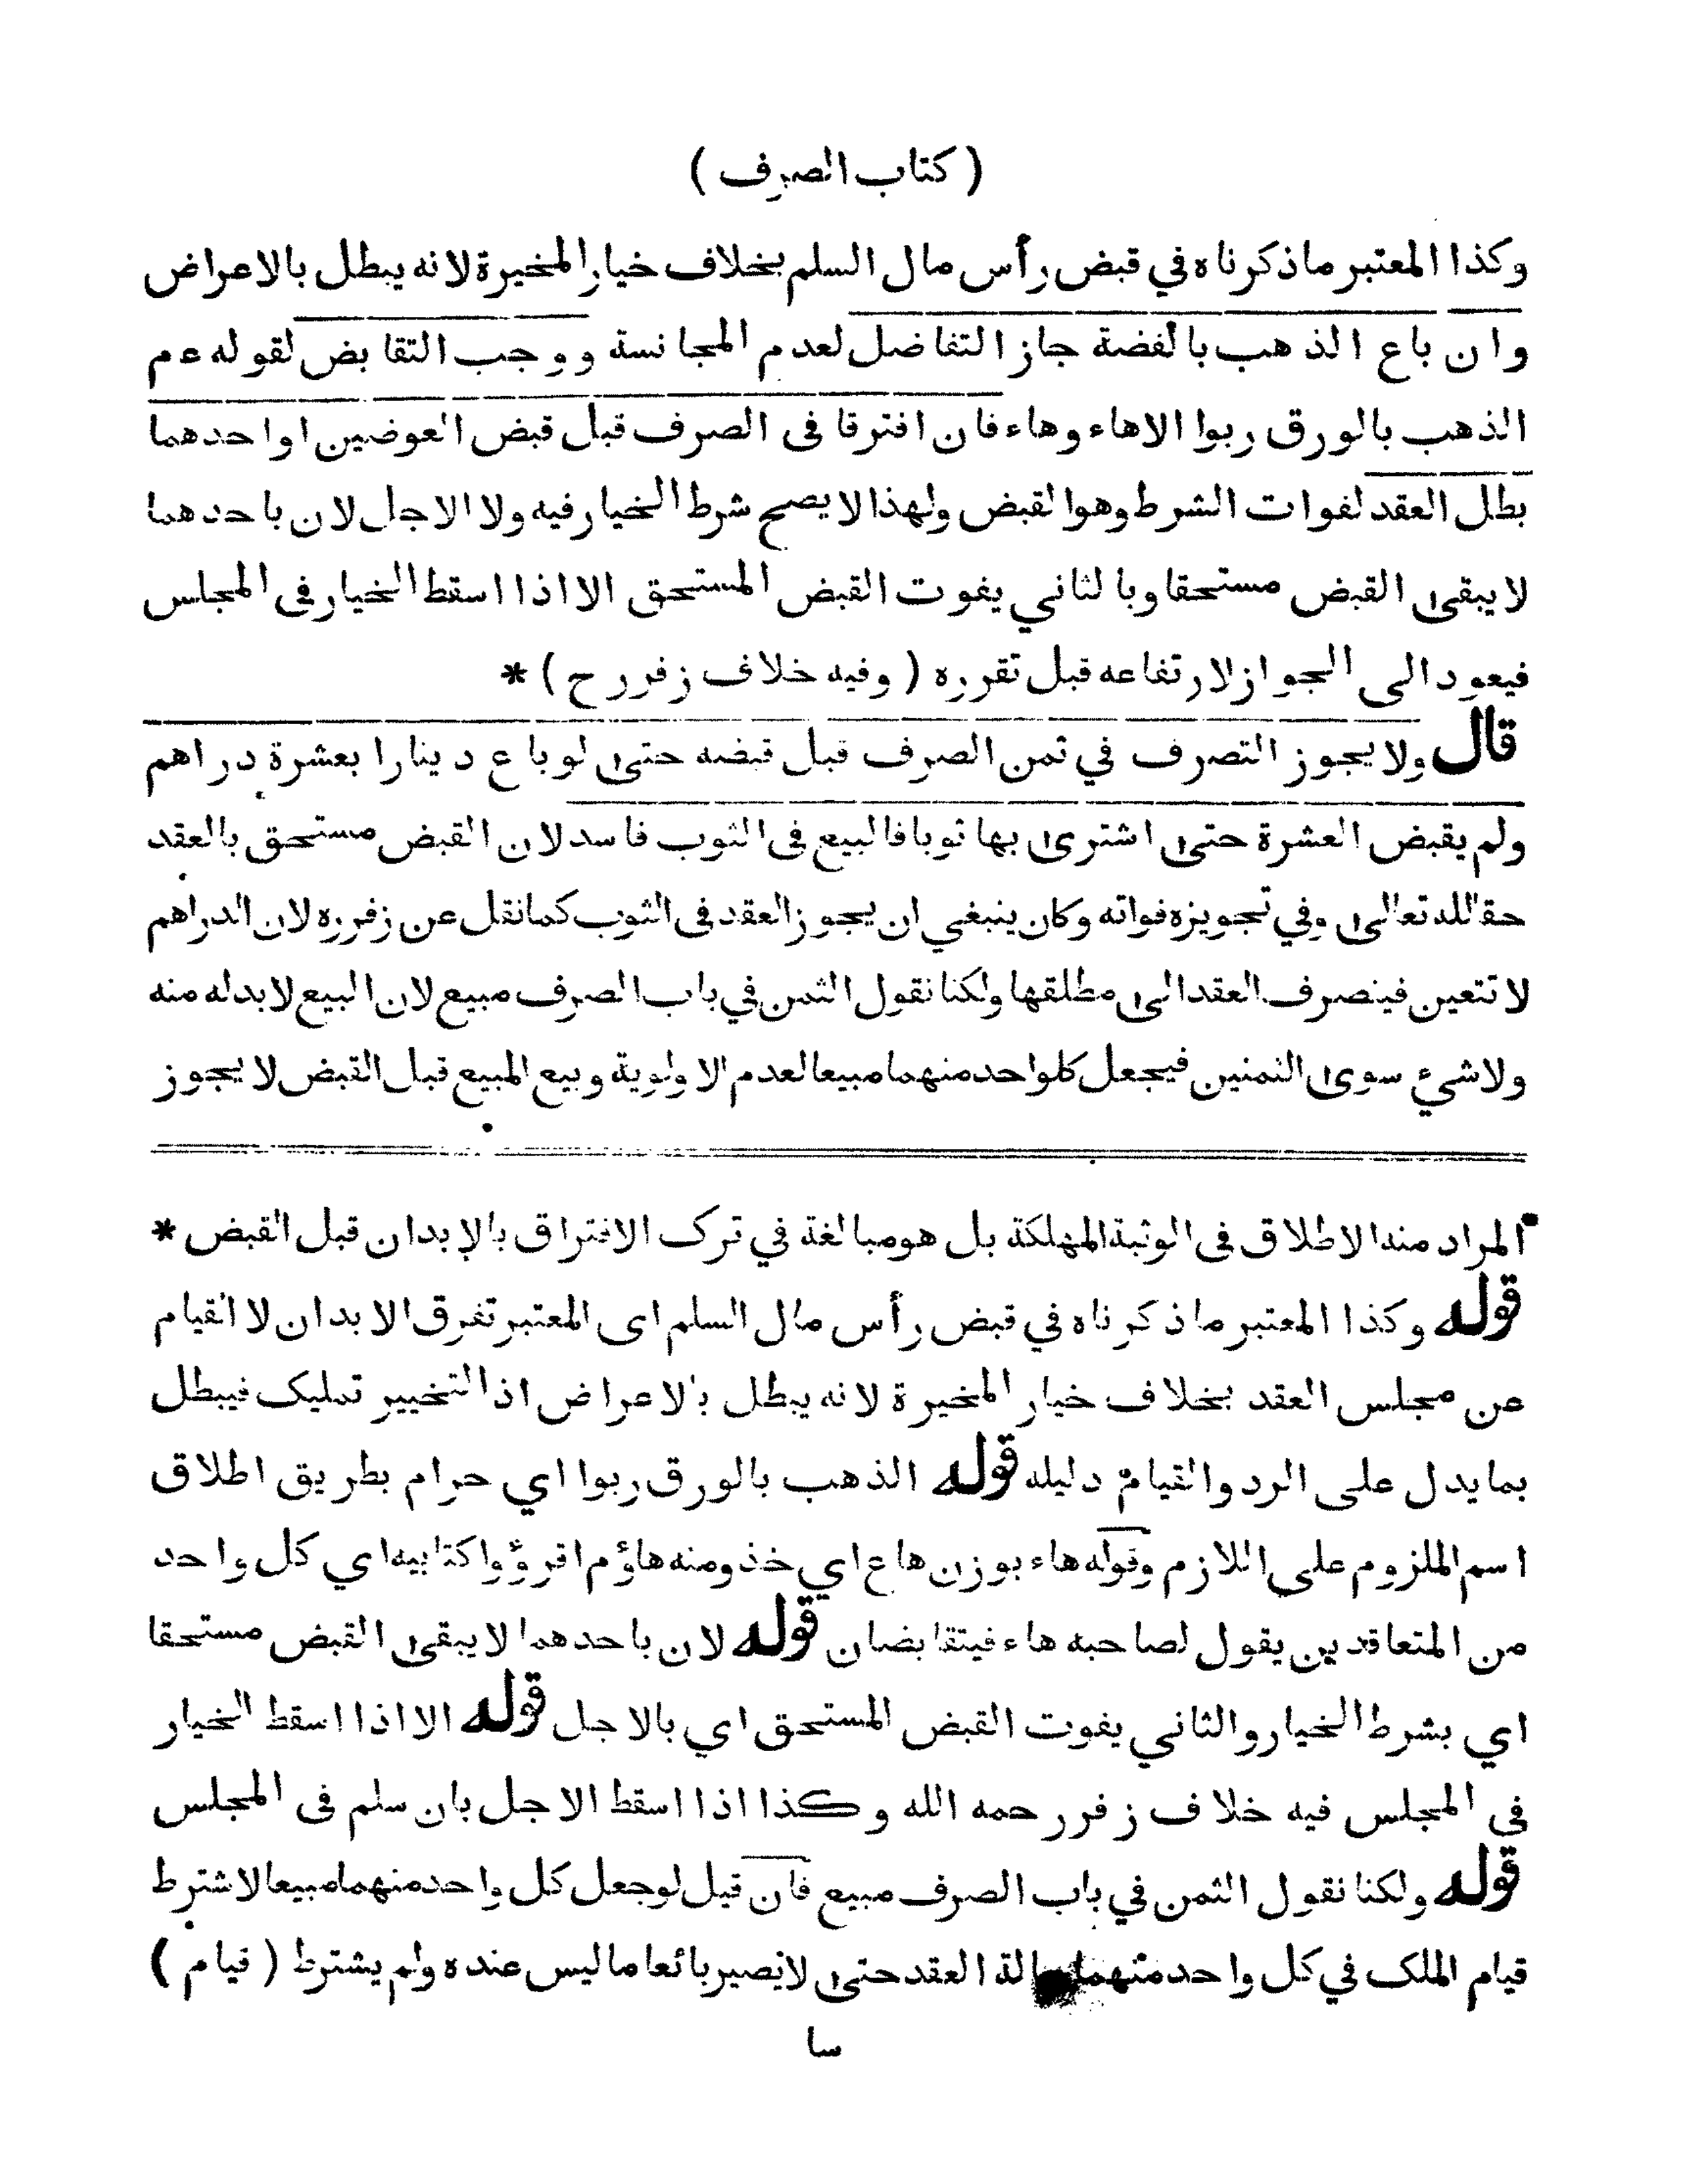 ( كتاب الصرف )
وكذا المعتبر ما ذكرناه في قبض رأس مال السلم بخلاف خيار المخيرة لانه يبطل بالاعراض
وان باع الذهب بالفضة جاز التفاضل لعدم المجانسة ووجب التقابض لقوله ءم
الذهب بالورق ربوا الاهاء وهاء فان افترقا فى الصرف قبل قبض العوضين اواحدهما
بطل العقد لفوات الشرط وهوالقبض ولهذا لا يصح شرط الخيار فيه ولا الاجل لان باحدهما
لا يبقى القبض مستحقا وبالثاني يفوت القبض المستحق الا اذا اسقط الخيار فى المجلس
فيعود الى الجواز لارتفاعه قبل تقرره ( وفيه خلاف زفر رح ) *
قال ولا يجوز التصرف في ثمن الصرف قبل قبضه حتى لو باع دينارا بعشرة دراهم
ولم يقبض العشرة حتى اشترى بها ثوبا فالبيع فى الثوب فاسد لان القبض مستحق بالعقد
حقا لله تعالى وفي تجويزه فواته وكان ينبغي ان يجوز العقد فى الثوب كما نقل عن زفر ره لان الدراهم
لا تتعين فينصرف العقد الى مطلقها ولكنا نقول الثمن في باب الصرف مبيع لان البيع لا بد له منه
ولا شيء سوى الثمنين فيجعل كل واحد منهما مبيعا لعدم الاولوية وبيع المبيع قبل القبض لا يجوز
المراد منه الاطلاق فى الوثبة المهلكة بل هو مبالغة في ترك الافتراق بالابدان قبل القبض *
قوله وكذا المعتبر ما ذكرناه في قبض رأس مال السلم اى المعتبر تفرق الابدان لا القيام
عن مجلس العقد بخلاف خيار المخيرة لانه يبطل بالاعراض اذ التخيير تمليك فيبطل
بما يدل على الرد والقيام دليله قوله الذهب بالورق ربوا اي حرام بطريق اطلاق
اسم الملزوم على اللازم وقوله هاء بوزن هاع اي خذ ومنه هاؤم اقرؤوا كتابيه اي كل واحد
من المتعاقدين يقول لصاحبه هاء فيتقابضان قوله لان باحدهما لا يبقى القبض مستحقا
اي بشرط الخيار والثاني يفوت القبض المستحق اي بالاجل قوله الا اذا اسقط الخيار
فى المجلس فيه خلاف زفر رحمه الله وكذا اذا اسقط الاجل بان سلم فى المجلس
قوله ولكنا نقول الثمن في باب الصرف مبيع فان قيل لو جعل كل واحد منهما مبيعا لاشترط
قيام الملك في كل واحد منهما حالة العقد حتى لا يصير بائعا ما ليس عنده ولم يشترط ( قيام )
سا